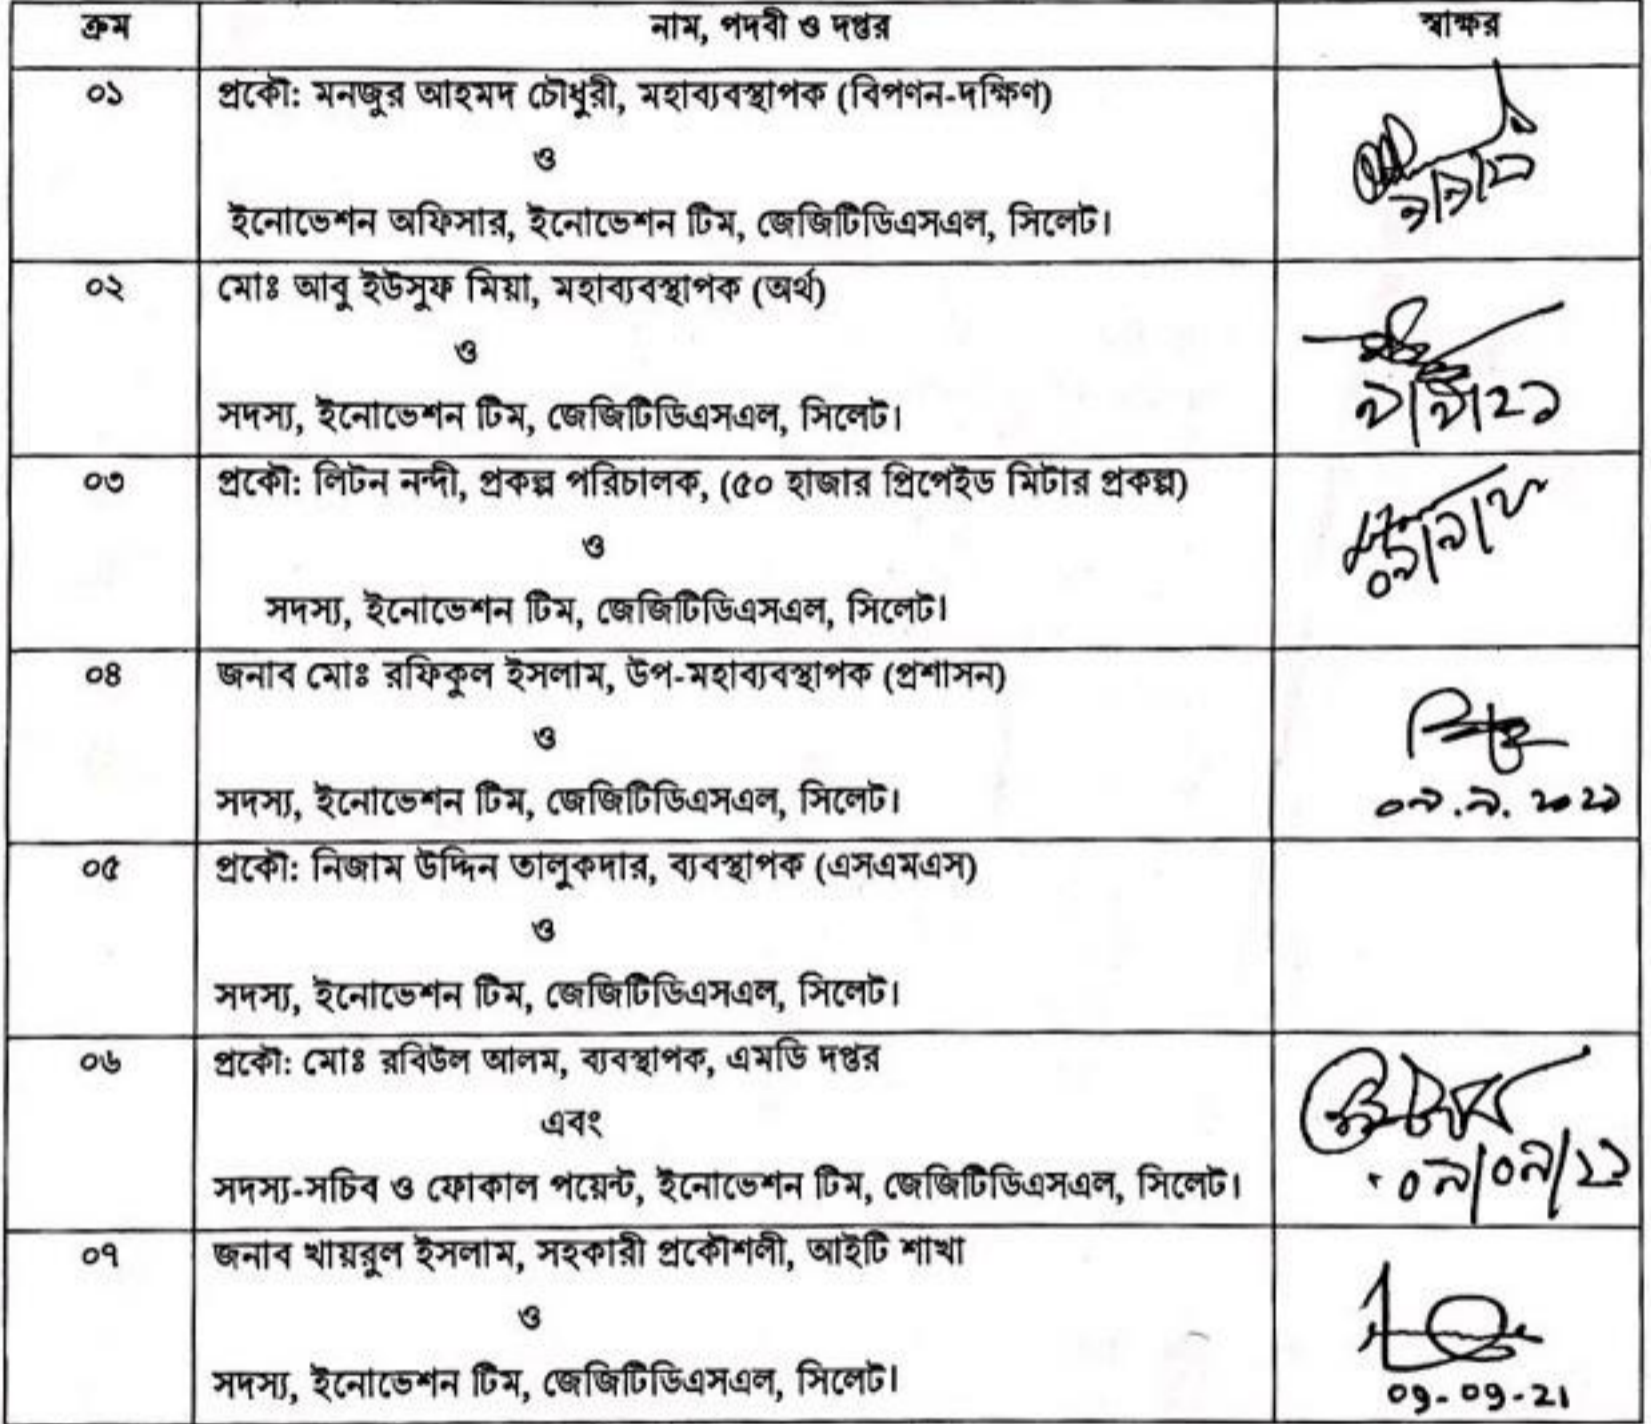 ক্রম নাম, পদবী ও দপ্তর স্বাক্ষর
০১ প্রকৌ: মনজুর আহমদ চৌধুরী, মহাব্যবস্থাপক (বিপণন-দক্ষিণ)
ও
ইনোভেশন অফিসার, ইনোভেশন টিম, জেজিটিডিএসএল, সিলেট।
৯/৯/২১
০২ মোঃ আবু ইউসুফ মিয়া, মহাব্যবস্থাপক (অর্থ)
ও
সদস্য, ইনোভেশন টিম, জেজিটিডিএসএল, সিলেট।
৯/৯/২১
০৩ প্রকৌ: লিটন নন্দী, প্রকল্প পরিচালক, (৫০ হাজার প্রিপেইড মিটার প্রকল্প)
ও
০৯/৯/২১
সদস্য, ইনোভেশন টিম, জেজিটিডিএসএল, সিলেট।
০৪ জনাব মোঃ রফিকুল ইসলাম, উপ-মহাব্যবস্থাপক (প্রশাসন)
ও
সদস্য, ইনোভেশন টিম, জেজিটিডিএসএল, সিলেট।
০৯.৯.২০২১
০৫ প্রকৌ: নিজাম উদ্দিন তালুকদার, ব্যবস্থাপক (এসএমএস)
ও
সদস্য, ইনোভেশন টিম, জেজিটিডিএসএল, সিলেট।
০৬ প্রকৌ: মোঃ রবিউল আলম, ব্যবস্থাপক, এমডি দপ্তর
এবং
সদস্য-সচিব ও ফোকাল পয়েন্ট, ইনোভেশন টিম, জেজিটিডিএসএল, সিলেট।
০৯/০৯/২১
০৭ জনাব খায়রুল ইসলাম, সহকারী প্রকৌশলী, আইটি শাখা
ও
সদস্য, ইনোভেশন টিম, জেজিটিডিএসএল, সিলেট।
09-09-21